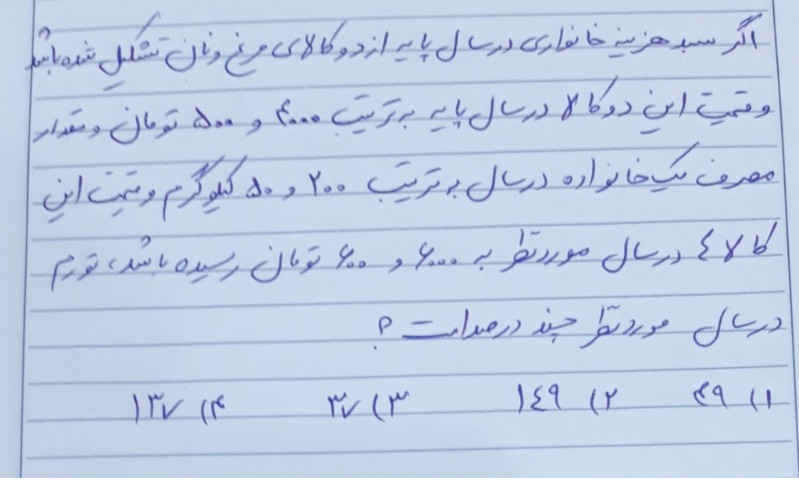 اگر سبد هزینه خانواری در سال پایه از دو کالای مرغ و نان تشکیل شده باشد
و قمیت این دو کالا در سال پایه به ترتیب ۴۰۰۰ و ۵۰۰ تومان و مقدار
مصرف یک خانواده در سال به ترتیب ۲۰۰ و ۵۰ کیلوگرم و قیمت این
کالاها در سال مورد نظر به ۶۰۰۰ و ۶۰۰ تومان رسیده باشد، تورم
در سال مورد نظر چند درصد است ؟
۱) ۴۹ ۲) ۱۴۹ ۳) ۳۷ ۴) ۱۳۷